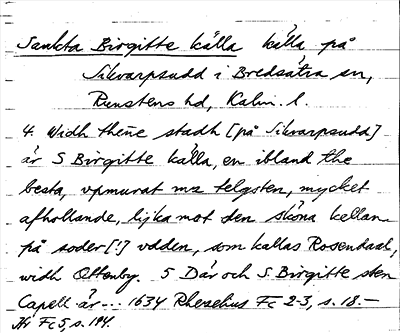 Sankta Birgitte källa källa på
Sikvarpsudd i Bredsätra sn,
Runstens hd, Kalm. l.
4. Widh thene stadh [på Sikvarpsudd]
är S Birgitte källa, en ibland the
besta, vpmurat mz telgsten, mycket
afhollande, lijka mot den sköna kellan
på söder[!] vdden, som kallas Rosendaal,
widh Ottenby. 5 Där och S. Birgitte sten
Capell är... 1634 Rhezelius Fc 2-3, s. 18.—
Fc 5, s. 194.